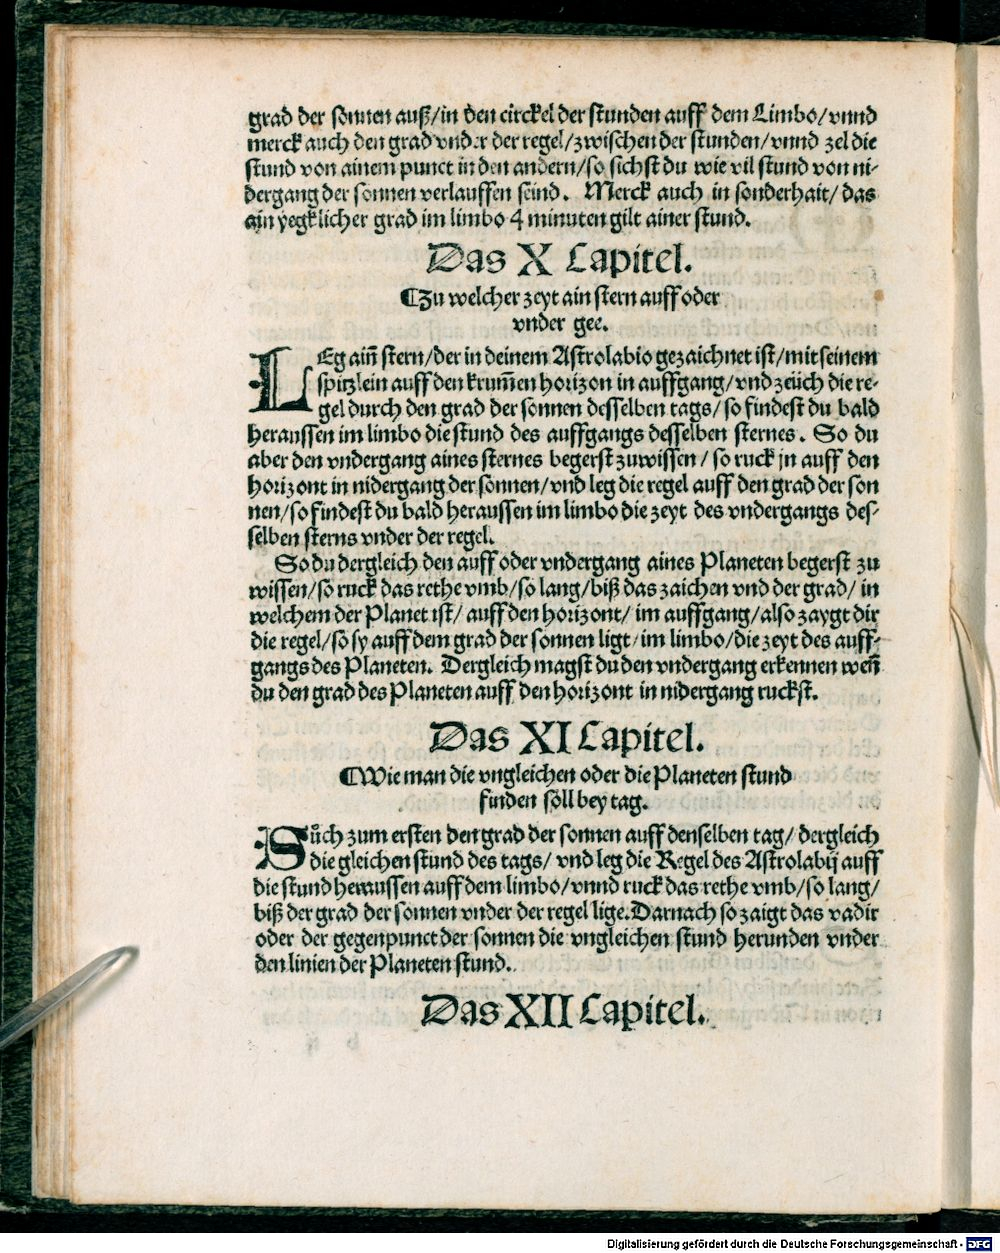 grad der sonnen auß/in den circkel der stunden auff dem Limbo/vnnd
merck auch den grad vnder der regel/zwischen der stunden/vnnd zel die
stund von ainem punct in den andern/so sichst du wie vil stund von ni-
dergang der sonnen verlauffen seind. Merck auch in sonderhait/das
ain yegklicher grad im limbo 4 minuten gilt ainer stund.
Das X Capitel.
¶Zu welcher zeyt ain stern auff oder
vnder gee.
LEg ain̄ stern/der in deinem Astrolabio gezaichnet ist/mit seinem
spitzlein auff den krum̄en horizon in auffgang/vnd zeüch die re-
gel durch den grad der sonnen desselben tags/so findest du bald
heraussen im limbo die stund des auffgangs desselben sternes. So du
aber den vndergang aines sternes begerst zuwissen/so ruck jn auff den
horizont in nidergang der sonnen/vnd leg die regel auff den grad der son
nen/so findest du bald heraussen im limbo die zeyt des vndergangs des-
selben sterns vnder der regel.
So du dergleich den auff oder vndergang aines Planeten begerst zu
wissen/so ruck das rethe vmb/so lang/biß das zaichen vnd der grad/in
welchem der Planet ist/auff den horizont/im auffgang/also zaygt dir
die regel/so sy auff dem grad der sonnen ligt/im limbo/die zeyt des auff-
gangs des Planeten. Dergleich magst du den vndergang erkennen wen̄
du den grad des Planeten auff den horizont in nidergang ruckst.
Das XI Capitel.
¶Wie man die vngleichen oder die Planeten stund
finden söll bey tag.
Sůch zum ersten den grad der sonnen auff denselben tag/dergleich
die gleichen stund des tags/vnd leg die Regel des Astrolabij auff
die stund heraussen auff dem limbo/vnnd ruck das rethe vmb/so lang/
biß der grad der sonnen vnder der regel lige. Darnach so zaigt das nadir
oder der gegenpunct der sonnen die vngleichen stund herunden vnder
den linien der Planeten stund.
Das XII Capitel.
Digitalisierung gefördert durch die Deutsche Forschungsgemeinschaft - DFG